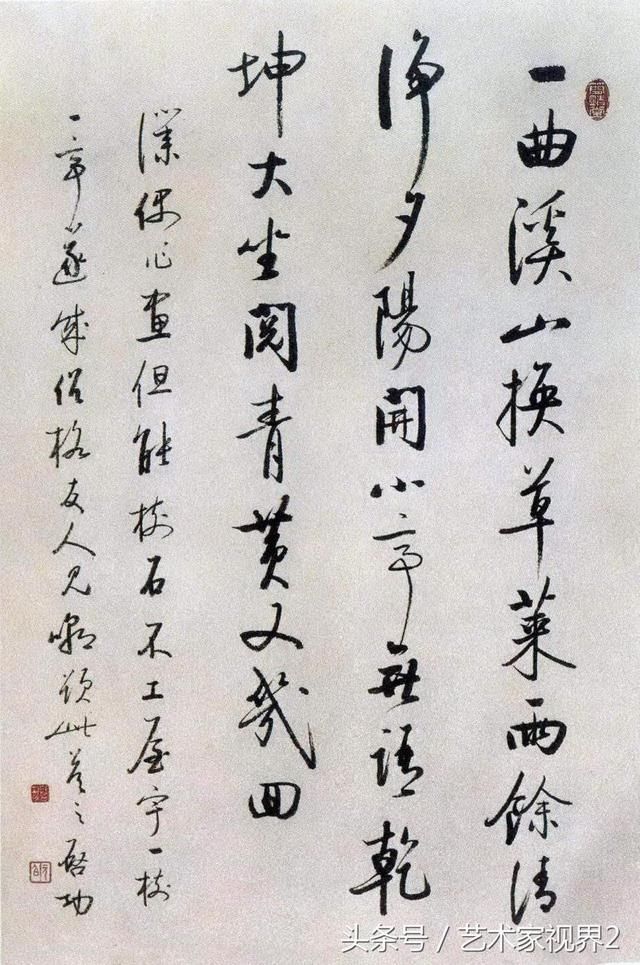 一曲溪山換草萊雨餘清
淨夕陽開小亭無語乾
坤大坐閱青黃又幾回
僕偶作畫但能樹石不工屋宇一樹
一亭遂成俗格友人見嘲此答之啓功
头条号 / 艺术家视界2